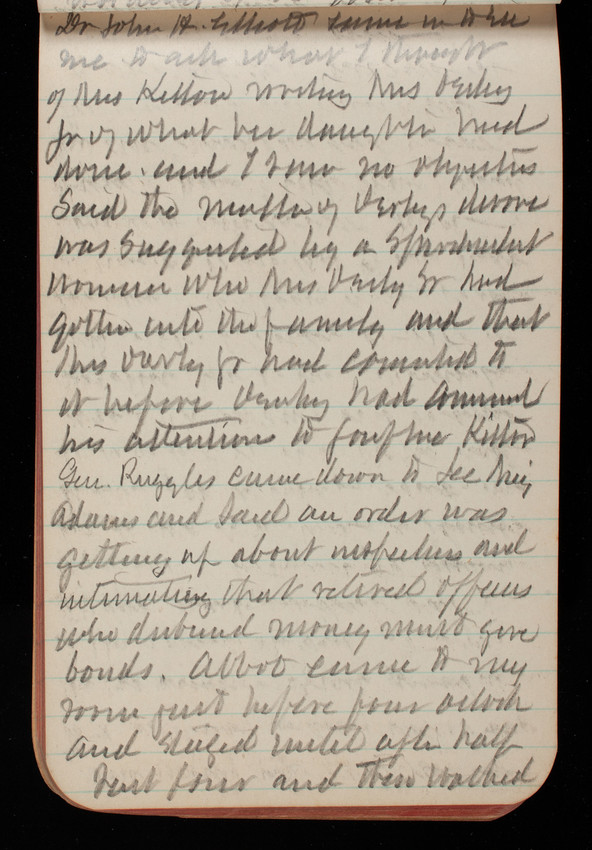 Dr John H. Elliott came in to see
me to ask what I thought
of Mrs Kitton writing Mrs Varley
Jr of what her daughter had
done. and I saw no objection
Said the matter of Varleys divorce
was suggested by a Spiritualist
woman who Mrs Varley Sr had
gotten into the family and that
Mrs Varley Jr had consented to
it before Varley had
his attention to Josephine Kitton
Gen. Ruggles came down to see Maj
Adams and said an order was
getting up about inspection and
intimating that retired officers
who disbursed money must give
bonds. Abbot came to my
room just before four oclock
and staid until after half
past four and then walked